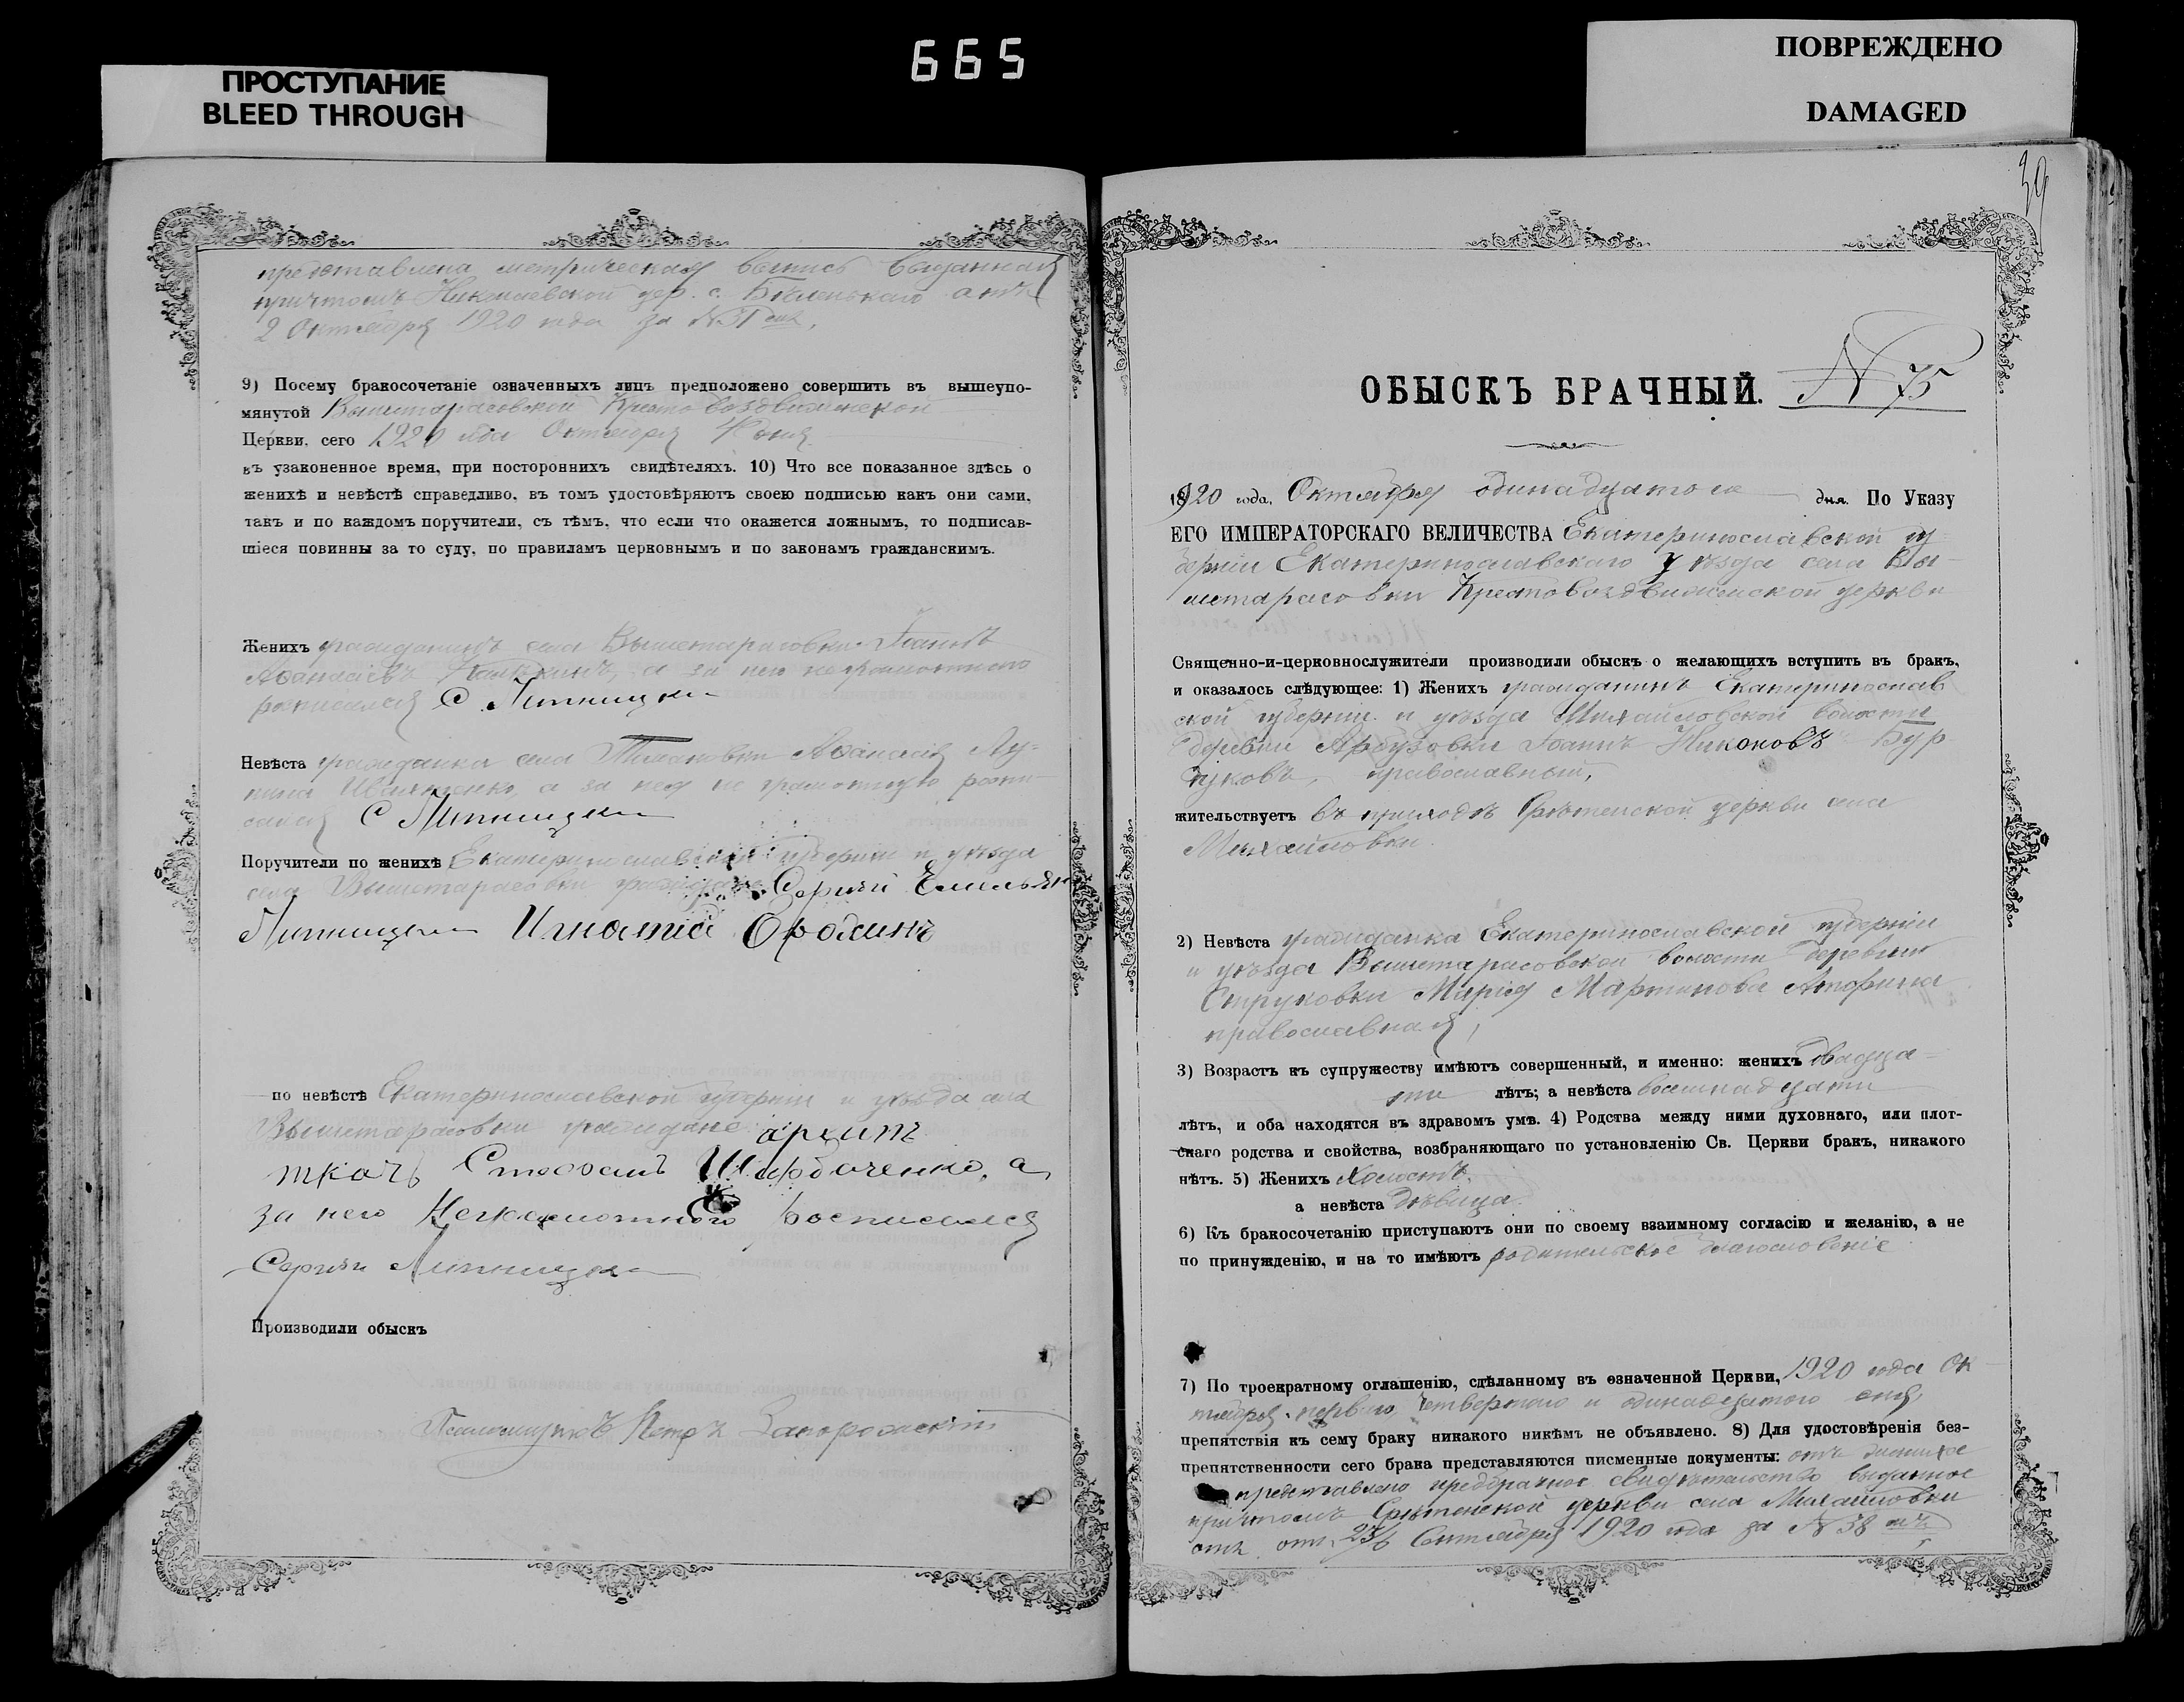 665
ПРОСТУПАНИЕ
BLEED THROUGH
ПОВРЕЖДЕНО
DAMAGED
представлена метрическая выпись выданная
причтомъ Николаевской цер. с. Бѣленькаго отъ
2 Октября 1920 года за №
9) Посему бракосочетаніе означенныхъ лицъ предположено совершить въ вышеупо-
мянутой Вышетарасовской Кресто воздвиженской
Церкви. сего 1920 года Октября 4 дня
въ узаконенное время, при постороннихъ свидѣтеляхъ. 10) Что все показанное здѣсь о
женихѣ и невѣстѣ справедливо, въ томъ удостовѣряютъ своею подписью какъ они сами,
такъ и по каждомъ поручители, съ тѣмъ, что если что окажется ложнымъ, то подписав-
шіеся повинны за то суду, по правиламъ церковнымъ и по законамъ гражданскимъ.
Женихъ гражданинъ села Вышетарасовки Іоаннъ
Аѳанасіевъ а за него неграмотнаго
росписался С.
Невѣста гражданка села Аѳанасія Лу-
кина а за нея не грамотную роспи
сался С
Поручители по женихѣ Екатеринославской губерніи и уѣзда
села Вышетарасовки граждане Сергѣй Емельян
Игнатій
по невѣстѣ Екатеринославской губерніи и уѣзда села
Вышетарасовки граждане
ткачъ а
за него Неграмотного росписался
Сергѣй
Производили обыскъ
Псаломщикъ Петръ Запорожскій
39
ОБЫСКЪ БРАЧНЫЙ. № 75
1920 года, Октября одинадцатого дня. По Указу
ЕГО ИМПЕРАТОРСКАГО ВЕЛИЧЕСТВА Екатеринославской гу-
берніи Екатеринославскаго уѣзда села Вы-
шетарасовки Крестовоздвиженской церкви
Священно-и-церковнослужители производили обыскъ о желающихъ вступить въ бракъ,
и оказалось слѣдующее: 1) Женихъ гражданинъ Екатеринослав
ской губерніи и уѣзда Михайловской волости
деревни Арбузовки Іоаннъ Никоновъ Бур
православный,
жительствуетъ въ приходѣ Срѣтенской церкви села
Михайловки.
2) Невѣста гражданка Екатеринославской губерніи
и уѣзда Вышетарасовской волости деревни
Струковки Марія Мартинова
православная,
3) Возрастъ къ супружеству имѣютъ совершенный, и именно: женихъ двадца-
ти лѣтъ; а невѣста восемнадцати
лѣтъ, и оба находятся въ здравомъ умѣ. 4) Родства между ними духовнаго, или плот-
скаго родства и свойства, возбраняющаго по установленію Св. Церкви бракъ, никакого
нѣтъ. 5) Женихъ холостъ,
а невѣста дѣвица.
6) Къ бракосочетанію приступаютъ они по своему взаимному согласію и желанію, а не
по принужденію, и на то имѣютъ родительское благословеніе
7) По троекратному оглашенію, сдѣланному въ означенной Церкви, 1920 года Ок
тября перваго, четвертаго и одинадцатого дня,
препятствія къ сему браку никакого никѣмъ не объявлено. 8) Для удостовѣренія без-
препятственности сего брака представляются писменные документы: отъ жениха
представлено предбрачное свидѣтельство выданное
причтомъ Срѣтенской церкви села Михайловки
отъ Сентября 1920 года за № 38